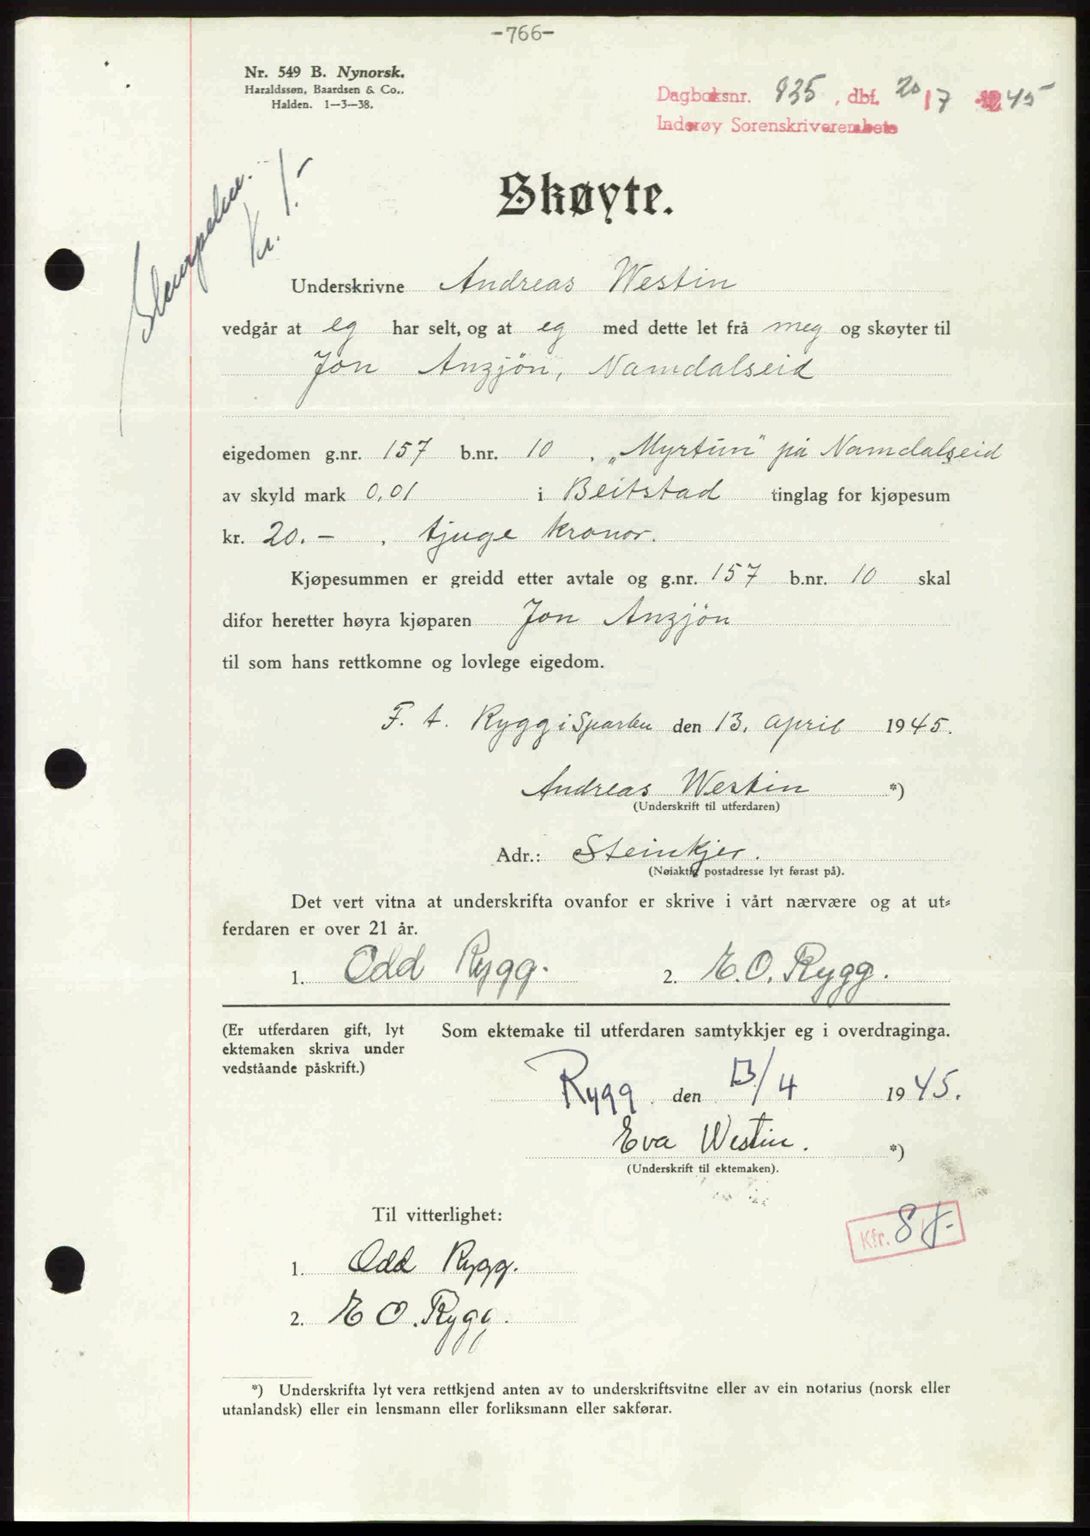 -766-
Nr. 549 B. Nynorsk.
Haraldssøn, Baardsen & Co..
Halden. 1—3—38.
Dagboksnr. 935, dbf. 20/7 1945
Inderøy Sorenskriverembete
Skøyte.
Stempelm.
Kr. 1.-
Underskrivne Andreas Westin
vedgår at eg har selt, og at eg med dette let frå meg og skøyter til
Jon Anzjön, Namdalseid
eigedomen g.nr. 157 b.nr. 10 , „Myrtun" på Namdalseid
av skyld mark 0,01 i Beitstad tinglag for kjøpesum
kr. 20.- , tjuge kronor.
Kjøpesummen er greidd etter avtale og g.nr. 157 b.nr. 10 skal
difor heretter høyra kjøparen Jon Anzjön
til som hans rettkomne og lovlege eigedom.
F. t. Rygg i Sparbu den 13. april 1945.
Andreas Westin *)
(Underskrift til utferdaren)
Adr.: Steinkjer.
(Nøiaktig postadresse lyt førast på).
Det vert vitna at underskrifta ovanfor er skrive i vårt nærvære og at ut=
ferdaren er over 21 år.
1. Odd Rygg. 2. E. O. Rygg.
(Er utferdaren gift, lyt
ektemaken skriva under
vedståande påskrift.)
Som ektemake til utferdaren samtykkjer eg i overdraginga.
Rygg. den 13/4 1945.
Eva Westin. *)
(Underskrift til ektemaken).
Til vitterlighet:
Kfr. 8
1. Odd Rygg.
2. E O. Rygg.
*) Underskrifta lyt vera rettkjend anten av to underskriftsvitne eller av ein notarius (norsk eller
utanlandsk) eller ein lensmann eller forliksmann eller sakførar.